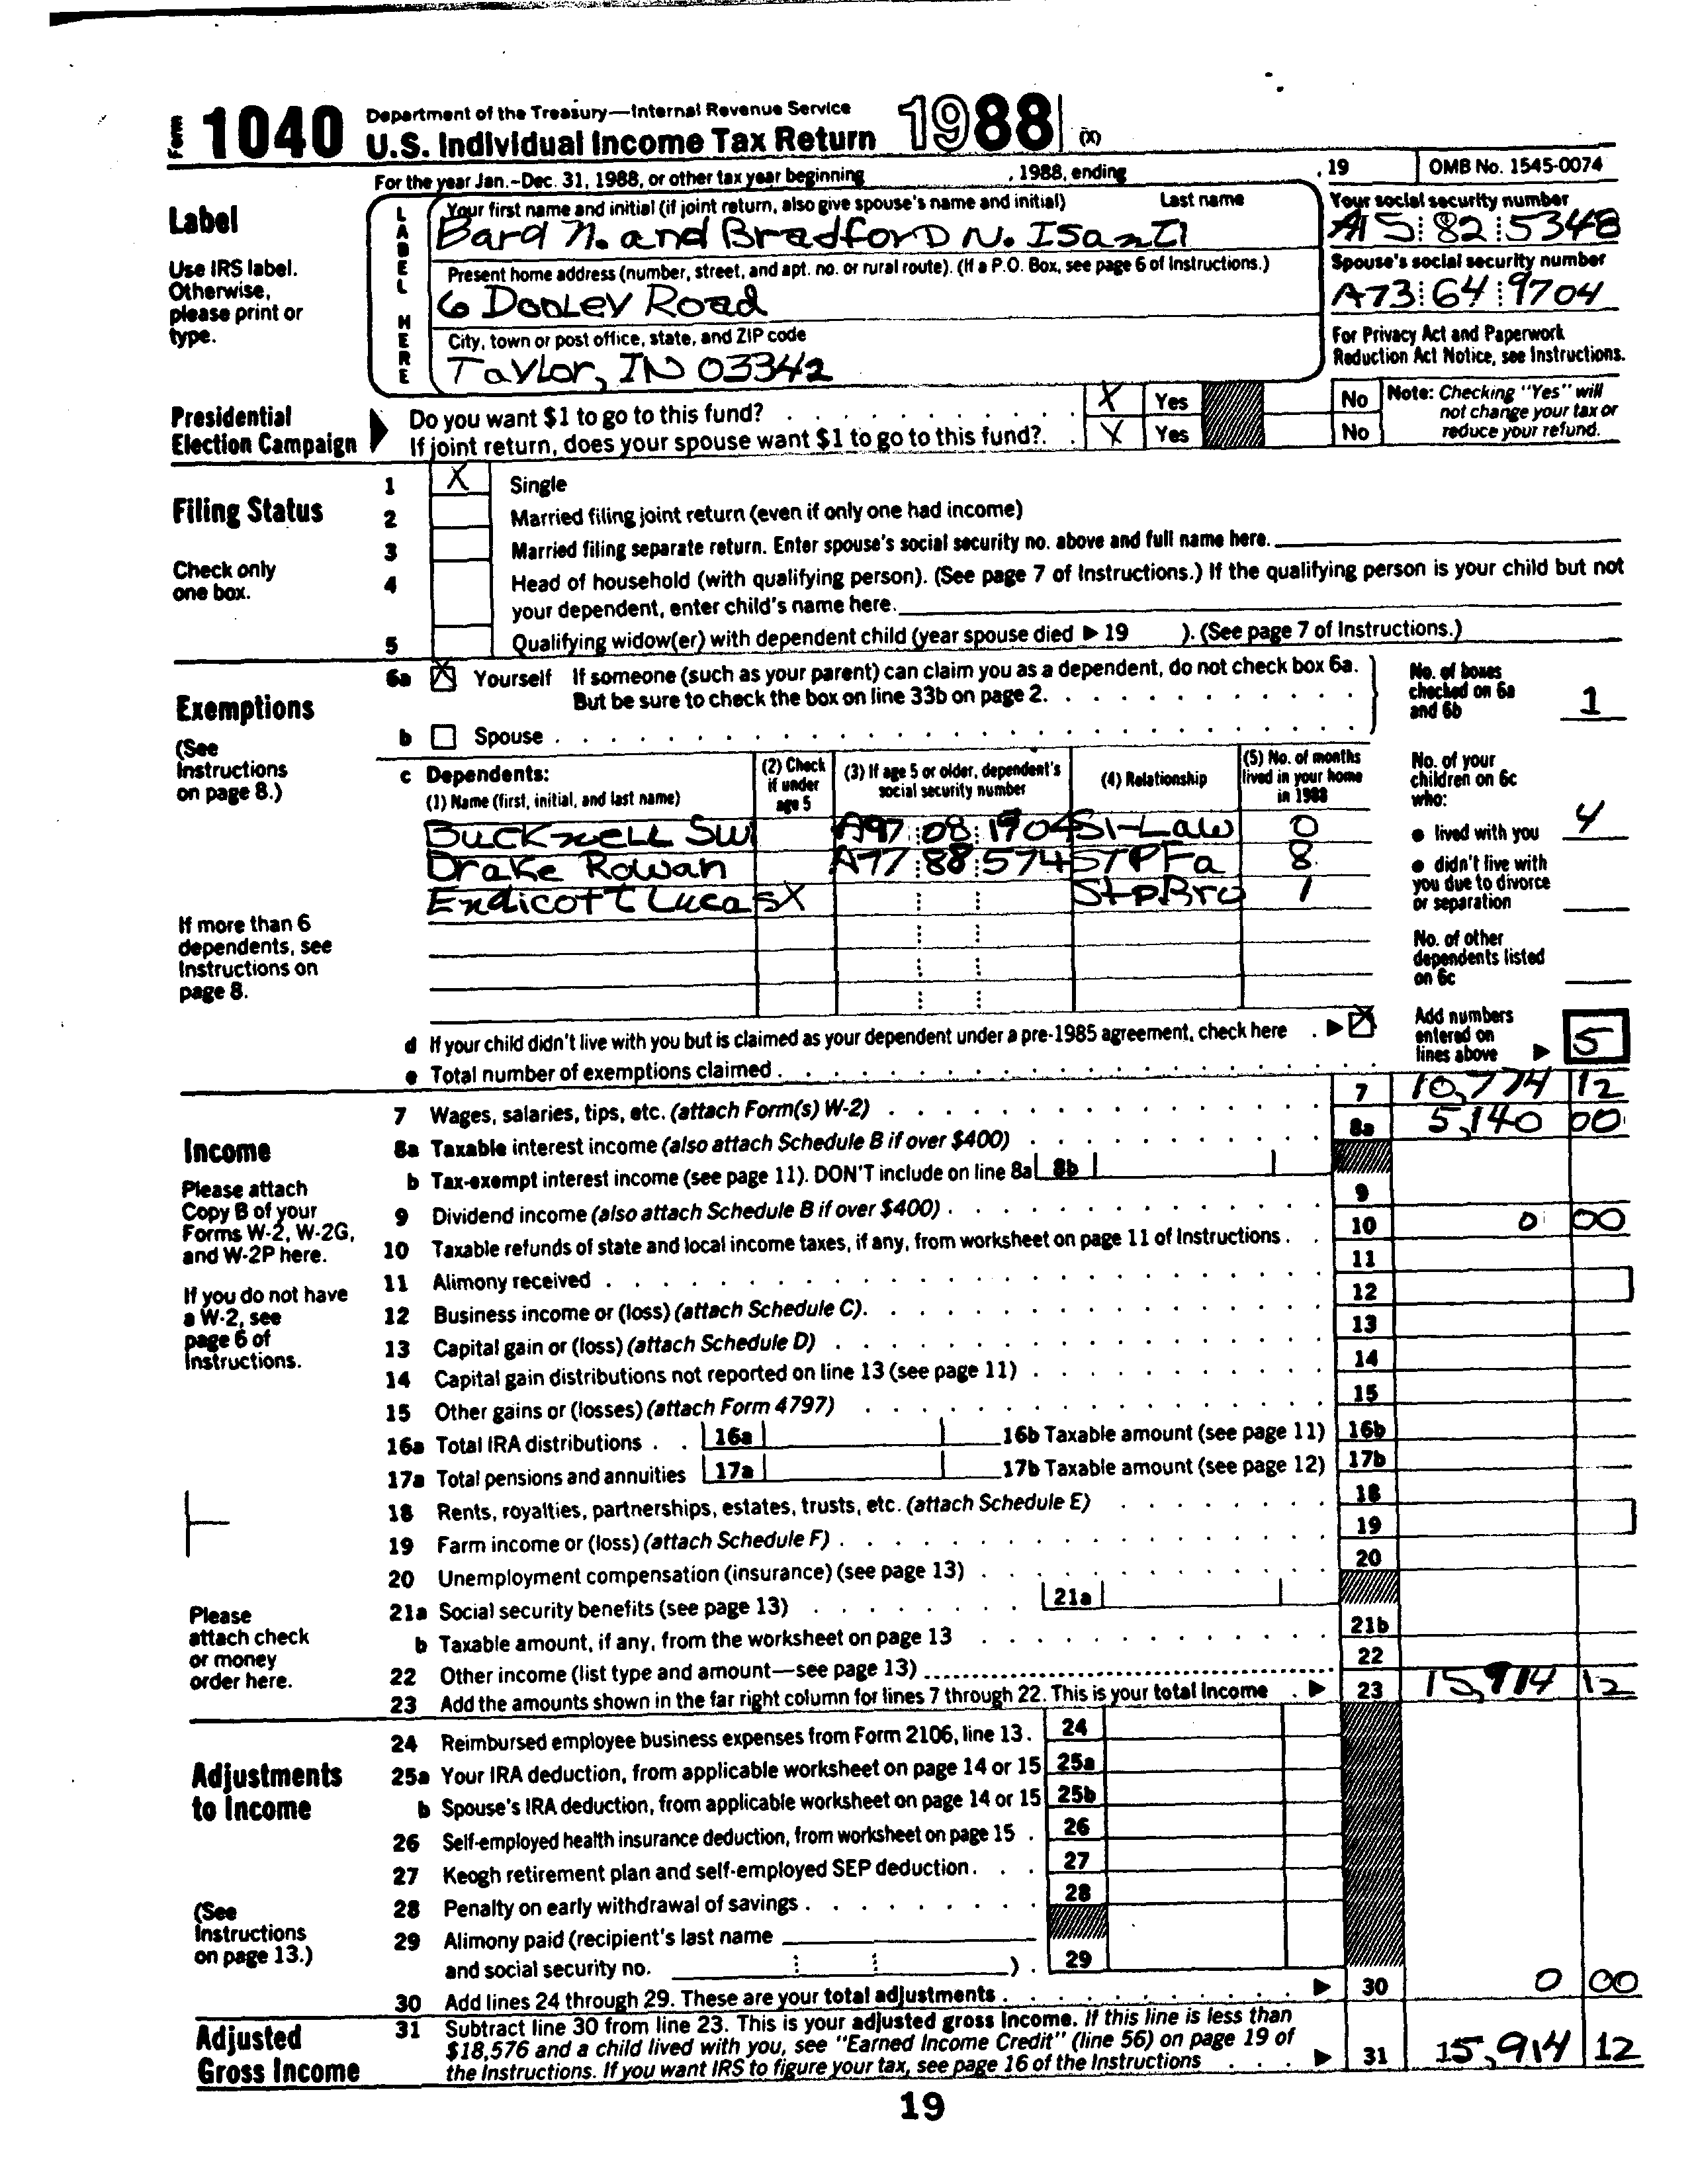 Form 1040 Department of the Treasury—Internal Revenue Service
U.S. Individual Income Tax Return 1988 (X)
For the year Jan.-Dec. 31, 1988, or other tax year beginning , 1988, ending , 19 OMB No. 1545-0074
Label
Use IRS label.
Otherwise,
please print or
type.
LABEL HERE
Your first name and initial (if joint return, also give spouse's name and initial) Last name
Bard N. and Bradford N. Isanti
Your social security number
A15:82:5348
Present home address (number, street, and apt. no. or rural route). (If a P.O. Box, see page 6 of Instructions.)
6 Dooley Road
Spouse's social security number
A73:64:9704
City, town or post office, state, and ZIP code
Taylor, IN 03342
For Privacy Act and Paperwork
Reduction Act Notice, see Instructions.
Presidential
Election Campaign
Do you want $1 to go to this fund? X Yes No
If joint return, does your spouse want $1 to go to this fund?. X Yes No
Note: Checking "Yes" will
not change your tax or
reduce your refund.
Filing Status
Check only
one box.
1 X Single
2 Married filing joint return (even if only one had income)
3 Married filing separate return. Enter spouse's social security no. above and full name here.
4 Head of household (with qualifying person). (See page 7 of Instructions.) If the qualifying person is your child but not
your dependent, enter child's name here.
5 Qualifying widow(er) with dependent child (year spouse died ▶ 19 ). (See page 7 of Instructions.)
Exemptions
(See
Instructions
on page 8.)
6a X Yourself If someone (such as your parent) can claim you as a dependent, do not check box 6a.
But be sure to check the box on line 33b on page 2.
b Spouse
No. of boxes
checked on 6a
and 6b 1
c Dependents:
(1) Name (first, initial, and last name)
(2) Check
if under
age 5
(3) If age 5 or older, dependent's
social security number
(4) Relationship
(5) No. of months
lived in your home
in 1988
Bucknell Swi A97:08:1904 SI-Law 0
Drake Rowan A77:88:574 STPFa 8
Endicott Lucas X StpBro 1
If more than 6
dependents, see
Instructions on
page 8.
No. of your
children on 6c
who:
● lived with you 4
● didn't live with
you due to divorce
or separation
No. of other
dependents listed
on 6c
d If your child didn't live with you but is claimed as your dependent under a pre-1985 agreement, check here . ▶ X
e Total number of exemptions claimed
Add numbers
entered on
lines above ▶ 5
Income
Please attach
Copy B of your
Forms W-2, W-2G,
and W-2P here.
If you do not have
a W-2, see
page 6 of
Instructions.
Please
attach check
or money
order here.
7 Wages, salaries, tips, etc. (attach Form(s) W-2) 7 10,774 12
8a Taxable interest income (also attach Schedule B if over $400) 8a 5,140 00
b Tax-exempt interest income (see page 11). DON'T include on line 8a 8b
9 Dividend income (also attach Schedule B if over $400) 9
10 Taxable refunds of state and local income taxes, if any, from worksheet on page 11 of Instructions. 10 0 00
11 Alimony received 11
12 Business income or (loss) (attach Schedule C). 12
13 Capital gain or (loss) (attach Schedule D) 13
14 Capital gain distributions not reported on line 13 (see page 11) 14
15 Other gains or (losses) (attach Form 4797) 15
16a Total IRA distributions 16a 16b Taxable amount (see page 11) 16b
17a Total pensions and annuities 17a 17b Taxable amount (see page 12) 17b
18 Rents, royalties, partnerships, estates, trusts, etc. (attach Schedule E) 18
19 Farm income or (loss) (attach Schedule F) 19
20 Unemployment compensation (insurance) (see page 13) 20
21a Social security benefits (see page 13) 21a
b Taxable amount, if any, from the worksheet on page 13 21b
22 Other income (list type and amount—see page 13) 22
23 Add the amounts shown in the far right column for lines 7 through 22. This is your total income . ▶ 23 15,914 12
Adjustments
to Income
(See
Instructions
on page 13.)
24 Reimbursed employee business expenses from Form 2106, line 13. 24
25a Your IRA deduction, from applicable worksheet on page 14 or 15 25a
b Spouse's IRA deduction, from applicable worksheet on page 14 or 15 25b
26 Self-employed health insurance deduction, from worksheet on page 15 . 26
27 Keogh retirement plan and self-employed SEP deduction. 27
28 Penalty on early withdrawal of savings 28
29 Alimony paid (recipient's last name
and social security no. ) . 29
30 Add lines 24 through 29. These are your total adjustments ▶ 30 0 00
Adjusted
Gross Income
31 Subtract line 30 from line 23. This is your adjusted gross income. If this line is less than
$18,576 and a child lived with you, see "Earned Income Credit" (line 56) on page 19 of
the Instructions. If you want IRS to figure your tax, see page 16 of the Instructions ▶ 31 15,914 12
19